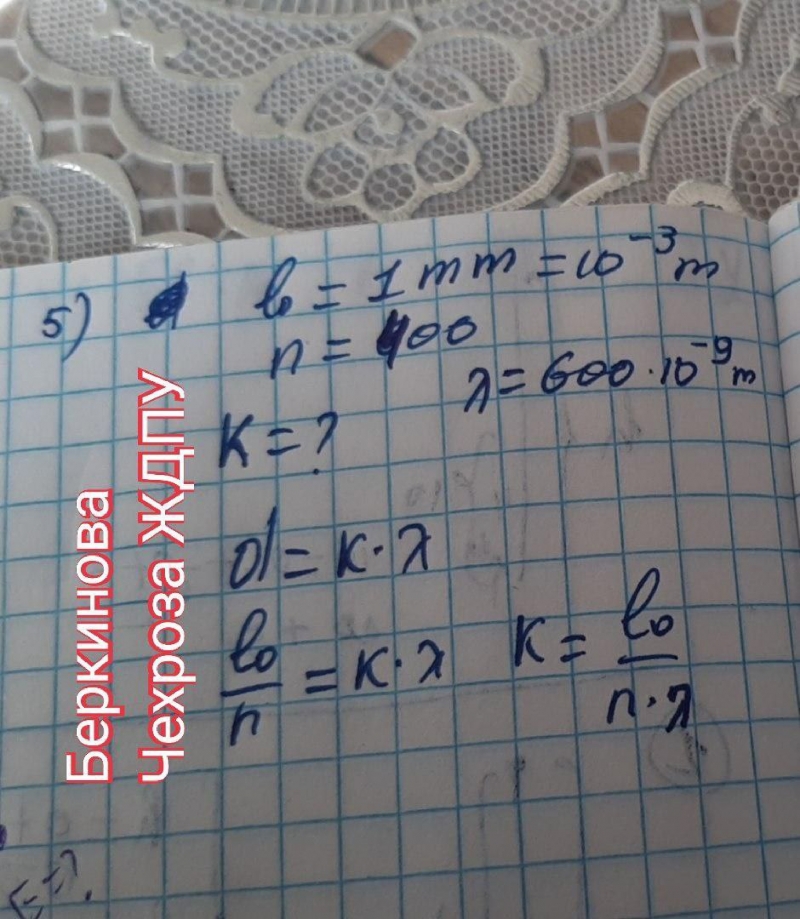 5) l₀ = 1 mm = 10⁻³ m
n = 400
λ = 600 · 10⁻⁹ m
K = ?
d = K · λ
l₀/n = K · λ K = l₀/(n · λ)
Беркинова
Чехроза ЖДПУ